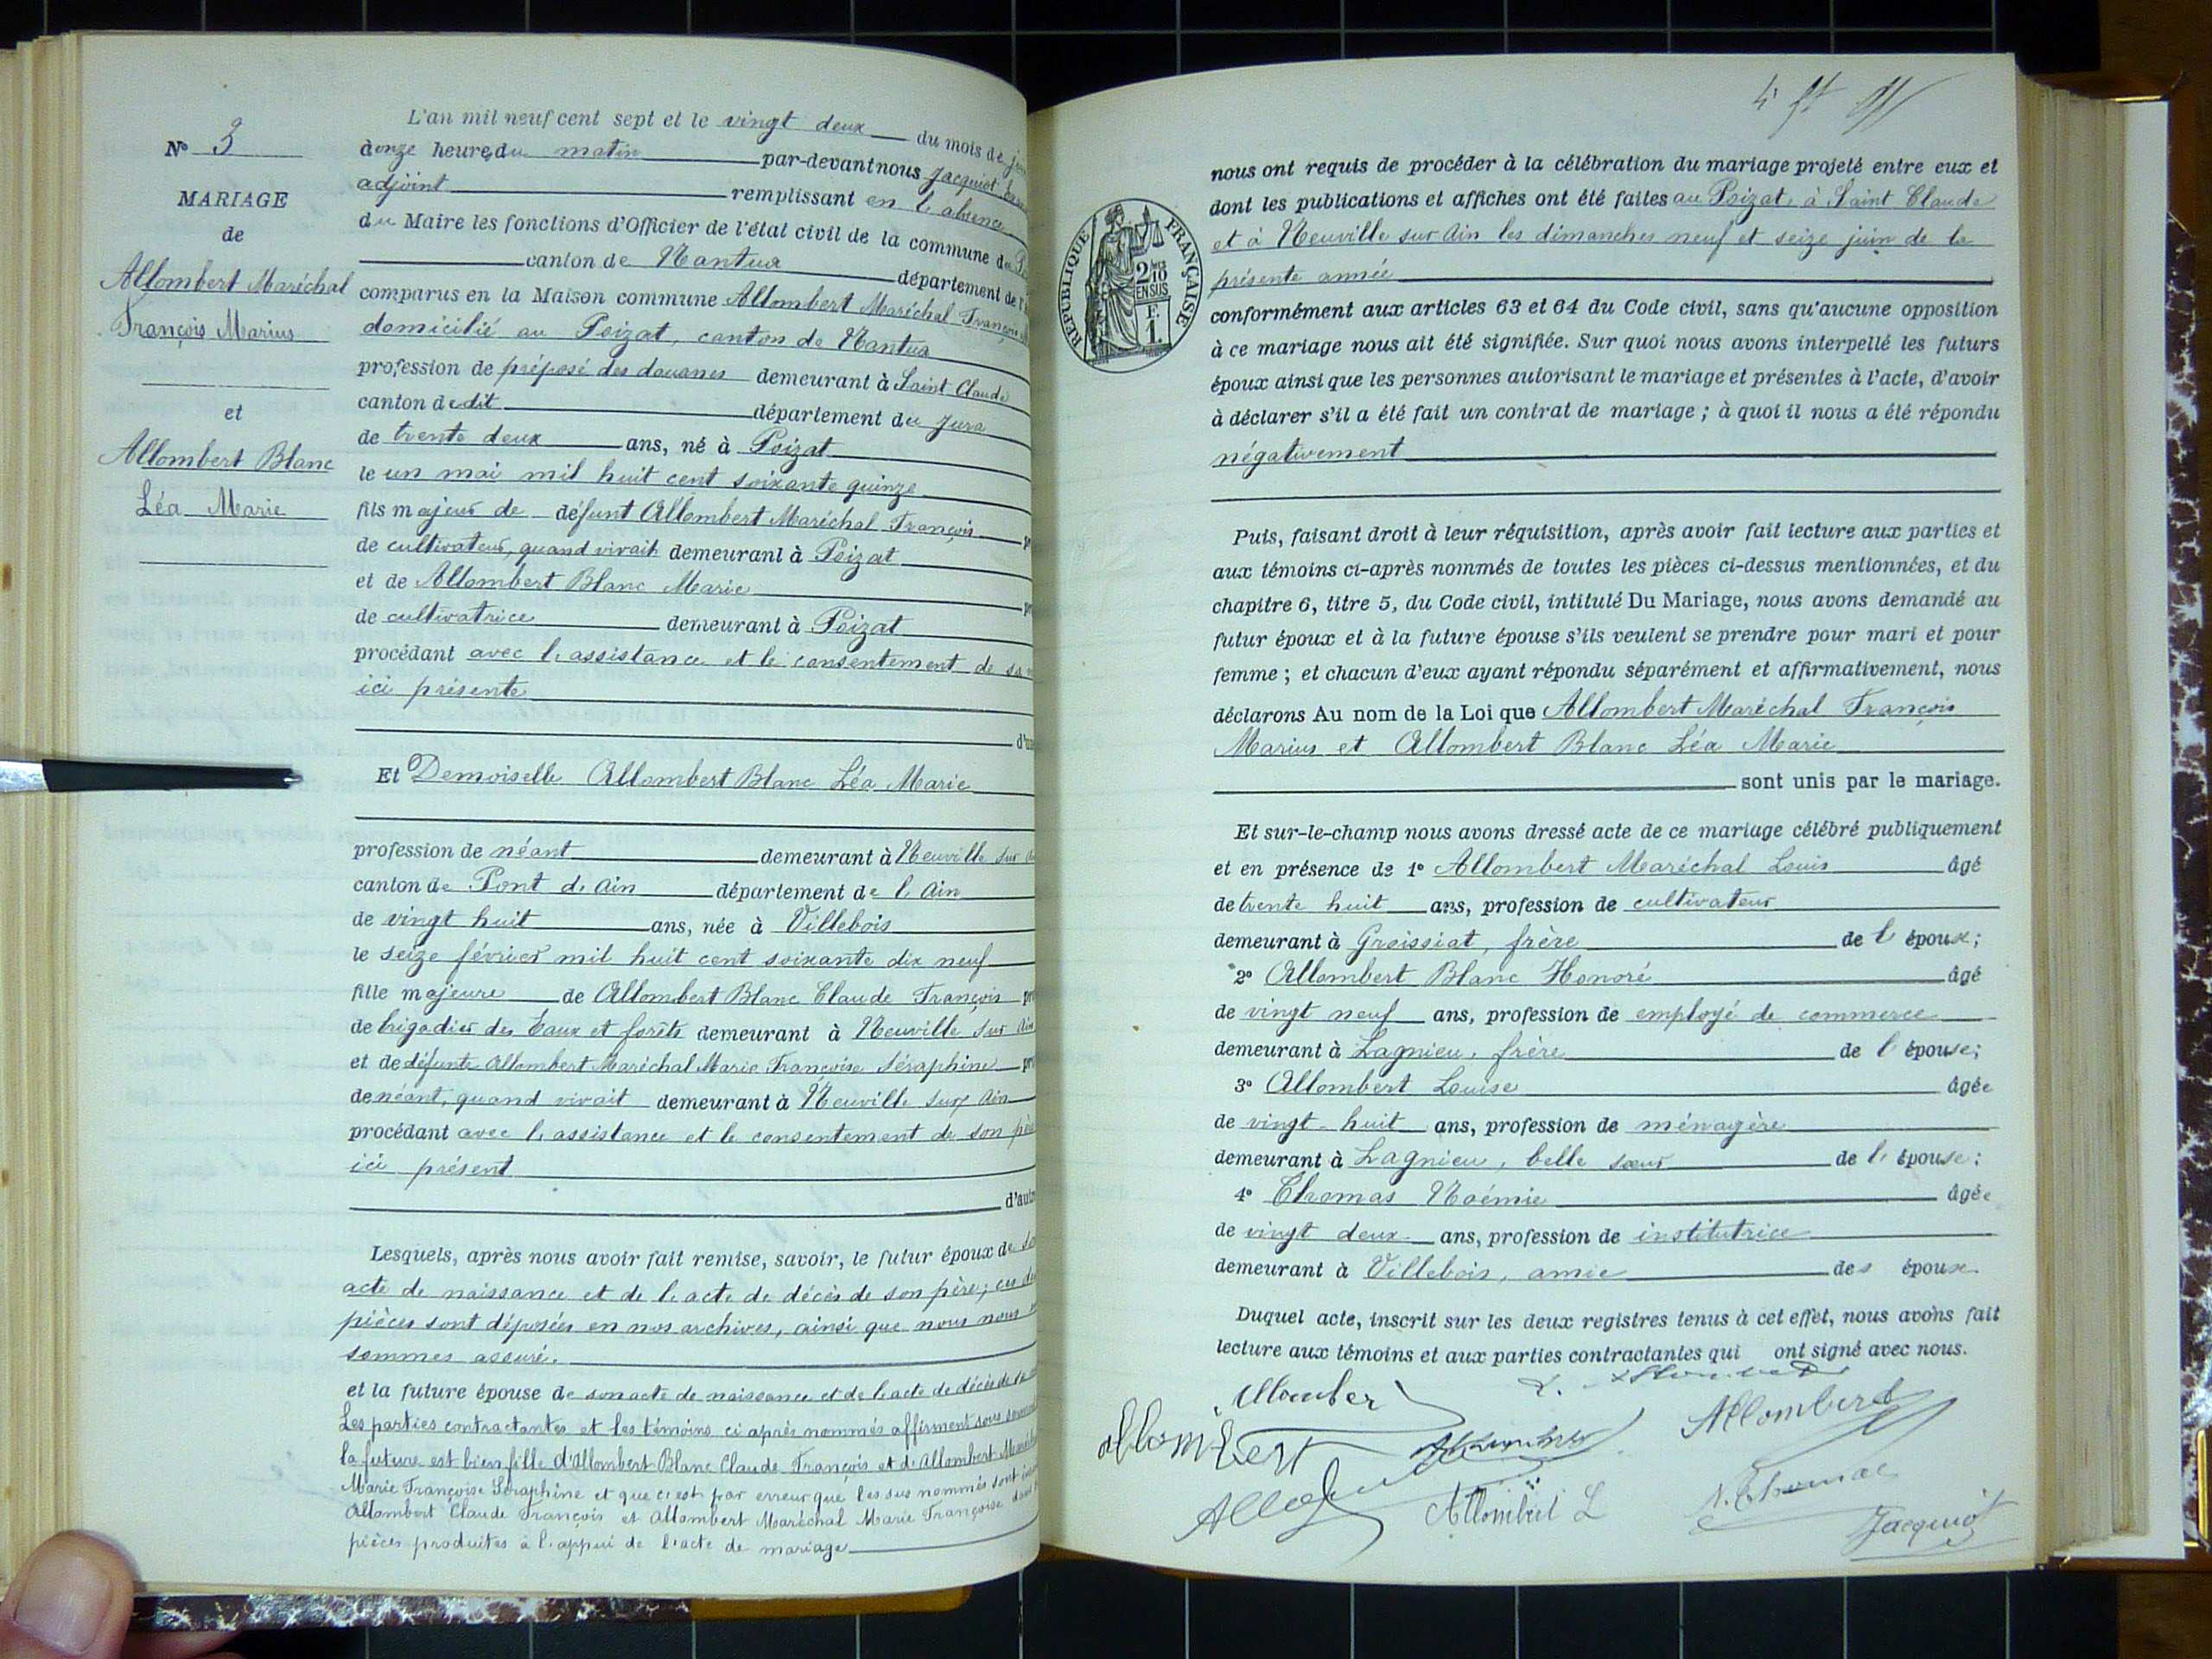 N° 3
MARIAGE
de
Allombert Maréchal
François Marius
et
Allombert Blanc
Léa Marie
L'an mil neuf cent sept et le vingt deux du mois de
à onze heures du matin par-devant nous Jacquiot
adjoint remplissant en l'absence
du Maire les fonctions d'Officier de l'état civil de la commune du
canton de Nantua département de l'
comparus en la Maison commune Allombert Maréchal François
domicilié au Poizat, canton de Nantua
profession de préposé des douanes demeurant à Saint Claude
canton de dit département du Jura
de trente deux ans, né à Poizat
le un mai mil huit cent soixante quinze
fils majeur de défunt Allombert Maréchal François
de cultivateur, quand vivait demeurant à Poizat
et de Allombert Blanc Marie
de cultivatrice demeurant à Poizat
procédant avec l'assistance et le consentement de sa
ici présente
Et Demoiselle Allombert Blanc Léa Marie
profession de néant demeurant à Neuville sur
canton de Pont d'Ain département de l'Ain
de vingt huit ans, née à Villebois
le seize février mil huit cent soixante dix neuf
fille majeure de Allombert Blanc Claude François
de brigadier des Eaux et forêts demeurant à Neuville sur Ain
et de défunte Allombert Maréchal Marie Françoise Séraphine
de néant, quand vivait demeurant à Neuville sur Ain
procédant avec l'assistance et le consentement de son père
ici présent
d'autre
Lesquels, après nous avoir fait remise, savoir, le futur époux de
acte de naissance et de l'acte de décès de son père; ces
pièces sont déposées en nos archives, ainsi que nous nous
sommes assuré.
et la future épouse de son acte de naissance et de l'acte de décès de
Les parties contractantes et les témoins ci après nommés affirment sous
la future est bien fille d'Allombert Blanc Claude François et d'Allombert
Marie Françoise Séraphine et que c'est par erreur que les sus nommés sont
Allombert Claude François et Allombert Maréchal Marie Françoise
pièces produites à l'appui de l'acte de mariage
RÉPUBLIQUE FRANÇAISE
2/10
EN SUS
F.
1.
nous ont requis de procéder à la célébration du mariage projeté entre eux et
dont les publications et affiches ont été faites au Poizat, à Saint Claude
et à Neuville sur Ain les dimanches neuf et seize juin de la
présente année
conformément aux articles 63 et 64 du Code civil, sans qu'aucune opposition
à ce mariage nous ait été signifiée. Sur quoi nous avons interpellé les futurs
époux ainsi que les personnes autorisant le mariage et présentes à l'acte, d'avoir
à déclarer s'il a été fait un contrat de mariage ; à quoi il nous a été répondu
négativement
Puis, faisant droit à leur réquisition, après avoir fait lecture aux parties et
aux témoins ci-après nommés de toutes les pièces ci-dessus mentionnées, et du
chapitre 6, titre 5, du Code civil, intitulé Du Mariage, nous avons demandé au
futur époux et à la future épouse s'ils veulent se prendre pour mari et pour
femme ; et chacun d'eux ayant répondu séparément et affirmativement, nous
déclarons Au nom de la Loi que Allombert Maréchal François
Marius et Allombert Blanc Léa Marie
sont unis par le mariage.
Et sur-le-champ nous avons dressé acte de ce mariage célébré publiquement
et en présence de 1° Allombert Maréchal Louis âgé
de trente huit ans, profession de cultivateur
demeurant à Groissiat, frère de l'époux;
2° Allombert Blanc Honoré âgé
de vingt neuf ans, profession de employé de commerce
demeurant à Lagnieu, frère de l'épouse;
3° Allombert Louise âgée
de vingt-huit ans, profession de ménagère
demeurant à Lagnieu, belle sœur de l'épouse;
4° Thomas Noémie âgée
de vingt deux ans, profession de institutrice
demeurant à Villebois, amie des époux.
Duquel acte, inscrit sur les deux registres tenus à cet effet, nous avons fait
lecture aux témoins et aux parties contractantes qui ont signé avec nous.
Allombert
Allombert
Allombert L
N. Thomas
Jacquiot